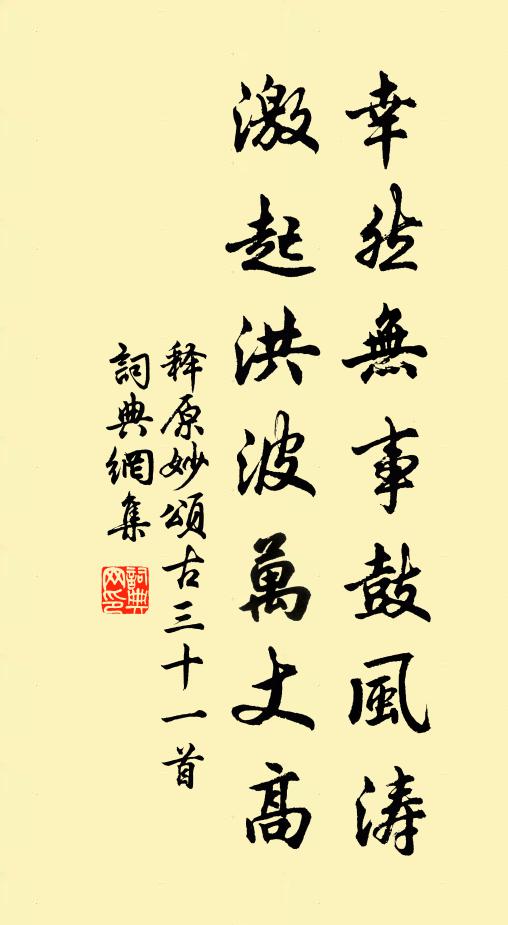 幸然無事鼓風涛
激起洪波萬丈高
释原妙頌古三十一首
詞典網集
詞典网印